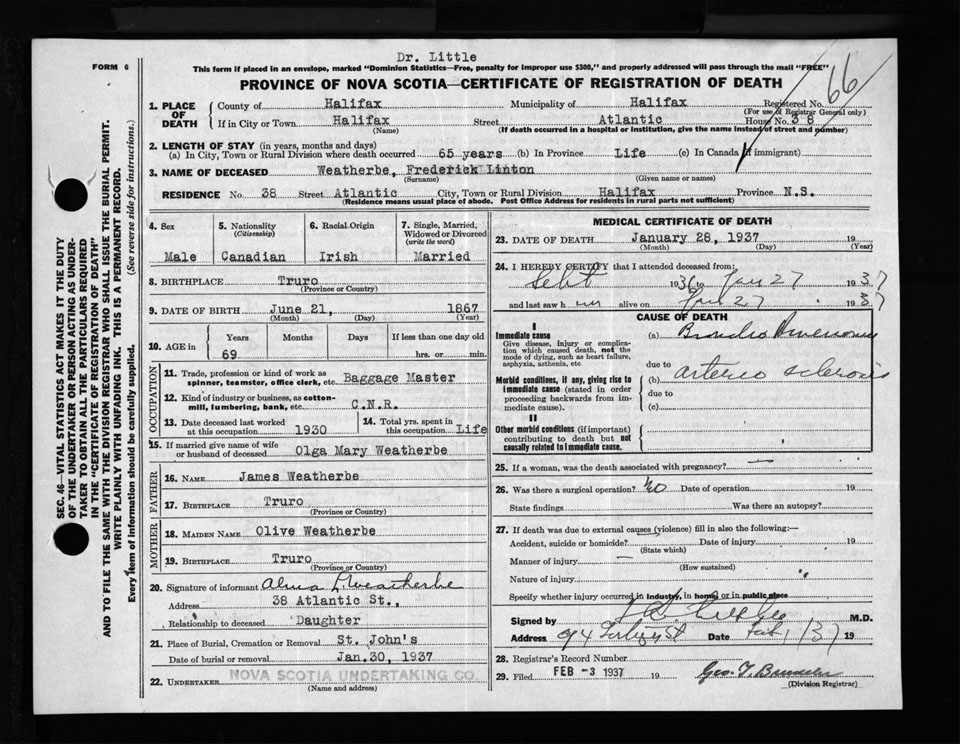 Dr. Little
FORM 6
This form if placed in an envelope, marked "Dominion Statistics—Free, penalty for improper use $300," and properly addressed will pass through the mail "FREE"
PROVINCE OF NOVA SCOTIA—CERTIFICATE OF REGISTRATION OF DEATH
66
1. PLACE OF DEATH
County of Halifax Municipality of Halifax Registered No.
(For use of Registrar General only)
If in City or Town Halifax Street Atlantic House No. 38
(Name) (If death occurred in a hospital or institution, give the name instead of street and number)
2. LENGTH OF STAY (in years, months and days)
(a) In City, Town or Rural Division where death occurred 65 years (b) In Province Life (c) In Canada (if immigrant)
3. NAME OF DECEASED Weatherbe, Frederick Linton
(Surname) (Given name or names)
RESIDENCE No. 38 Street Atlantic City, Town or Rural Division Halifax Province N.S.
(Residence means usual place of abode. Post Office Address for residents in rural parts not sufficient)
4. Sex 5. Nationality (Citizenship) 6. Racial Origin 7. Single, Married, Widowed or Divorced (write the word)
Male Canadian Irish Married
8. BIRTHPLACE Truro
(Province or Country)
9. DATE OF BIRTH June 21, 1867
(Month) (Day) (Year)
10. AGE in Years Months Days If less than one day old
69 hrs. or min.
OCCUPATION
11. Trade, profession or kind of work as spinner, teamster, office clerk, etc. Baggage Master
12. Kind of industry or business, as cotton-mill, lumbering, bank, etc. C.N.R.
13. Date deceased last worked at this occupation 1930
14. Total yrs. spent in this occupation Life
15. If married give name of wife or husband of deceased Olga Mary Weatherbe
FATHER
16. NAME James Weatherbe
17. BIRTHPLACE Truro
(Province or Country)
MOTHER
18. MAIDEN NAME Olive Weatherbe
19. BIRTHPLACE Truro
(Province or Country)
20. Signature of informant Alma L. Weatherbe
Address 38 Atlantic St.,
Relationship to deceased Daughter
21. Place of Burial, Cremation or Removal St. John's
Date of burial or removal Jan.30, 1937
22. UNDERTAKER NOVA SCOTIA UNDERTAKING CO.
(Name and address)
MEDICAL CERTIFICATE OF DEATH
23. DATE OF DEATH January 28, 1937 19
(Month) (Day) (Year)
24. I HEREBY CERTIFY that I attended deceased from:
Sept 1936 to Jan 27 1937
and last saw him alive on Jan 27 1937
CAUSE OF DEATH
I
Immediate cause
Give disease, injury or complication which caused death, not the mode of dying, such as heart failure, asphyxia, asthenia, etc.
(a) Broncho Pneumonia
due to
Morbid conditions, if any, giving rise to immediate cause (stated in order proceeding backwards from immediate cause).
(b) arterio sclerosis
due to
(c)
II
Other morbid conditions (if important) contributing to death but not causally related to immediate cause.
25. If a woman, was the death associated with pregnancy?
26. Was there a surgical operation? No Date of operation 19
State findings Was there an autopsy?
27. If death was due to external causes (violence) fill in also the following:—
Accident, suicide or homicide? Date of injury 19
(State which)
Manner of injury
(How sustained)
Nature of injury
Specify whether injury occurred in industry, in home, or in public place
Signed by M.D.
Address 94 St Date Feb 1/37 19
28. Registrar's Record Number
29. Filed FEB -3 1937 19 Geo. T.
(Division Registrar)
SEC. 46—VITAL STATISTICS ACT MAKES IT THE DUTY
OF THE UNDERTAKER OR PERSON ACTING AS UNDERTAKER
TO OBTAIN ALL THE PARTICULARS REQUIRED
IN THE "CERTIFICATE OF REGISTRATION OF DEATH"
AND TO FILE THE SAME WITH THE DIVISION REGISTRAR WHO SHALL ISSUE THE BURIAL PERMIT.
WRITE PLAINLY WITH UNFADING INK. THIS IS A PERMANENT RECORD.
Every item of information should be carefully supplied. (See reverse side for instructions.)